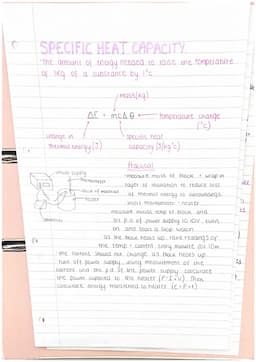 SPECIFIC HEAT CAPACITY.
The amount of energy needed to raise the temperature
of 1kg of a substance by 1°c
mass(kg)
ΔE = mcΔθ
temperature change
(°c)
change in
thermal energy(J)
specific heat
capacity (J/kg°c)
Practical
power supply
thermometer
block of material
heater
measure mass of block + wrap in
layer of insulation to reduce loss
of thermal energy to surroundings.
insert thermometer + heater.
measure initial temp of block and
set p.d of power supply to 10v. turn
on and start a stop watch
as the block heats up, take readings of
the temp + current every minute for 10m.
the current should not change as block heats up.
turn off power supply. using measurement of the
current and the p.d of the power supply, calculate
the power supplied to the heater (P=I×V). Then
calculate energy transferred to heater. (E=P×t)